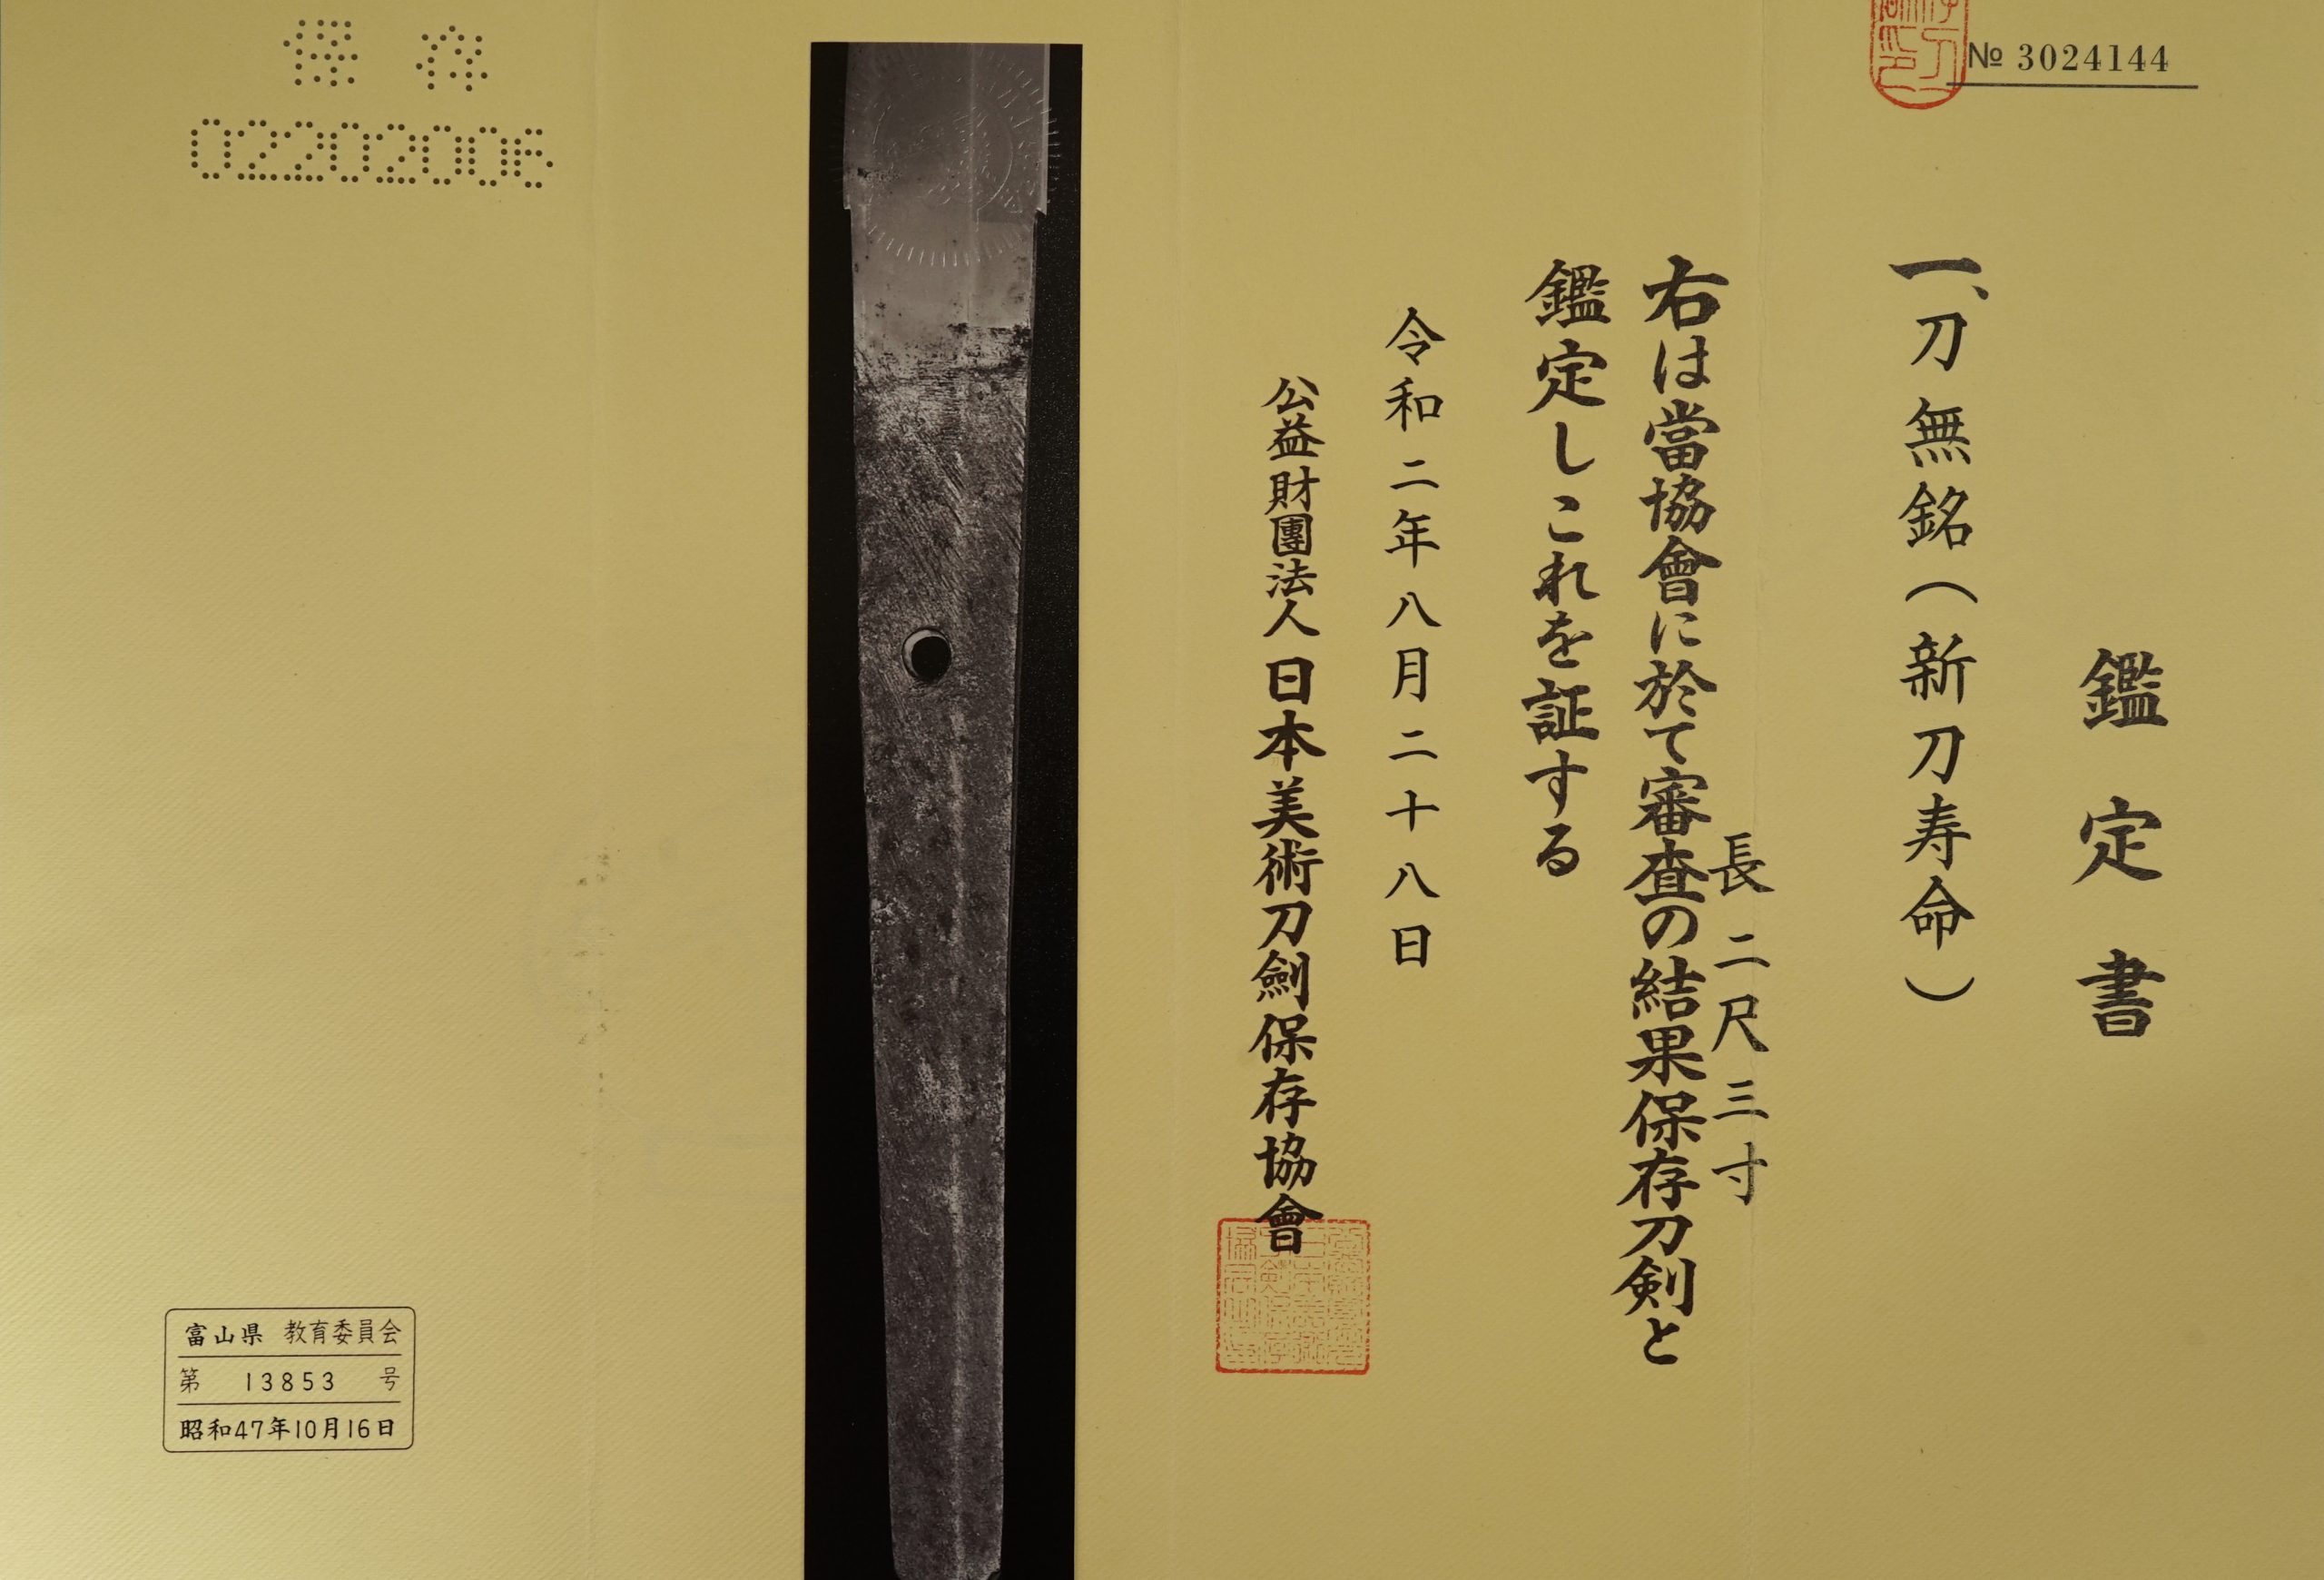 № 3024144
鑑定書
一、刀 無銘（新刀寿命）
長 二尺三寸
右は當協會に於て審査の結果保存刀剣と
鑑定しこれを証する
令和二年八月二十八日
公益財團法人 日本美術刀劍保存協會
保存
02202006
富山県 教育委員会
第 13853 号
昭和47年10月16日